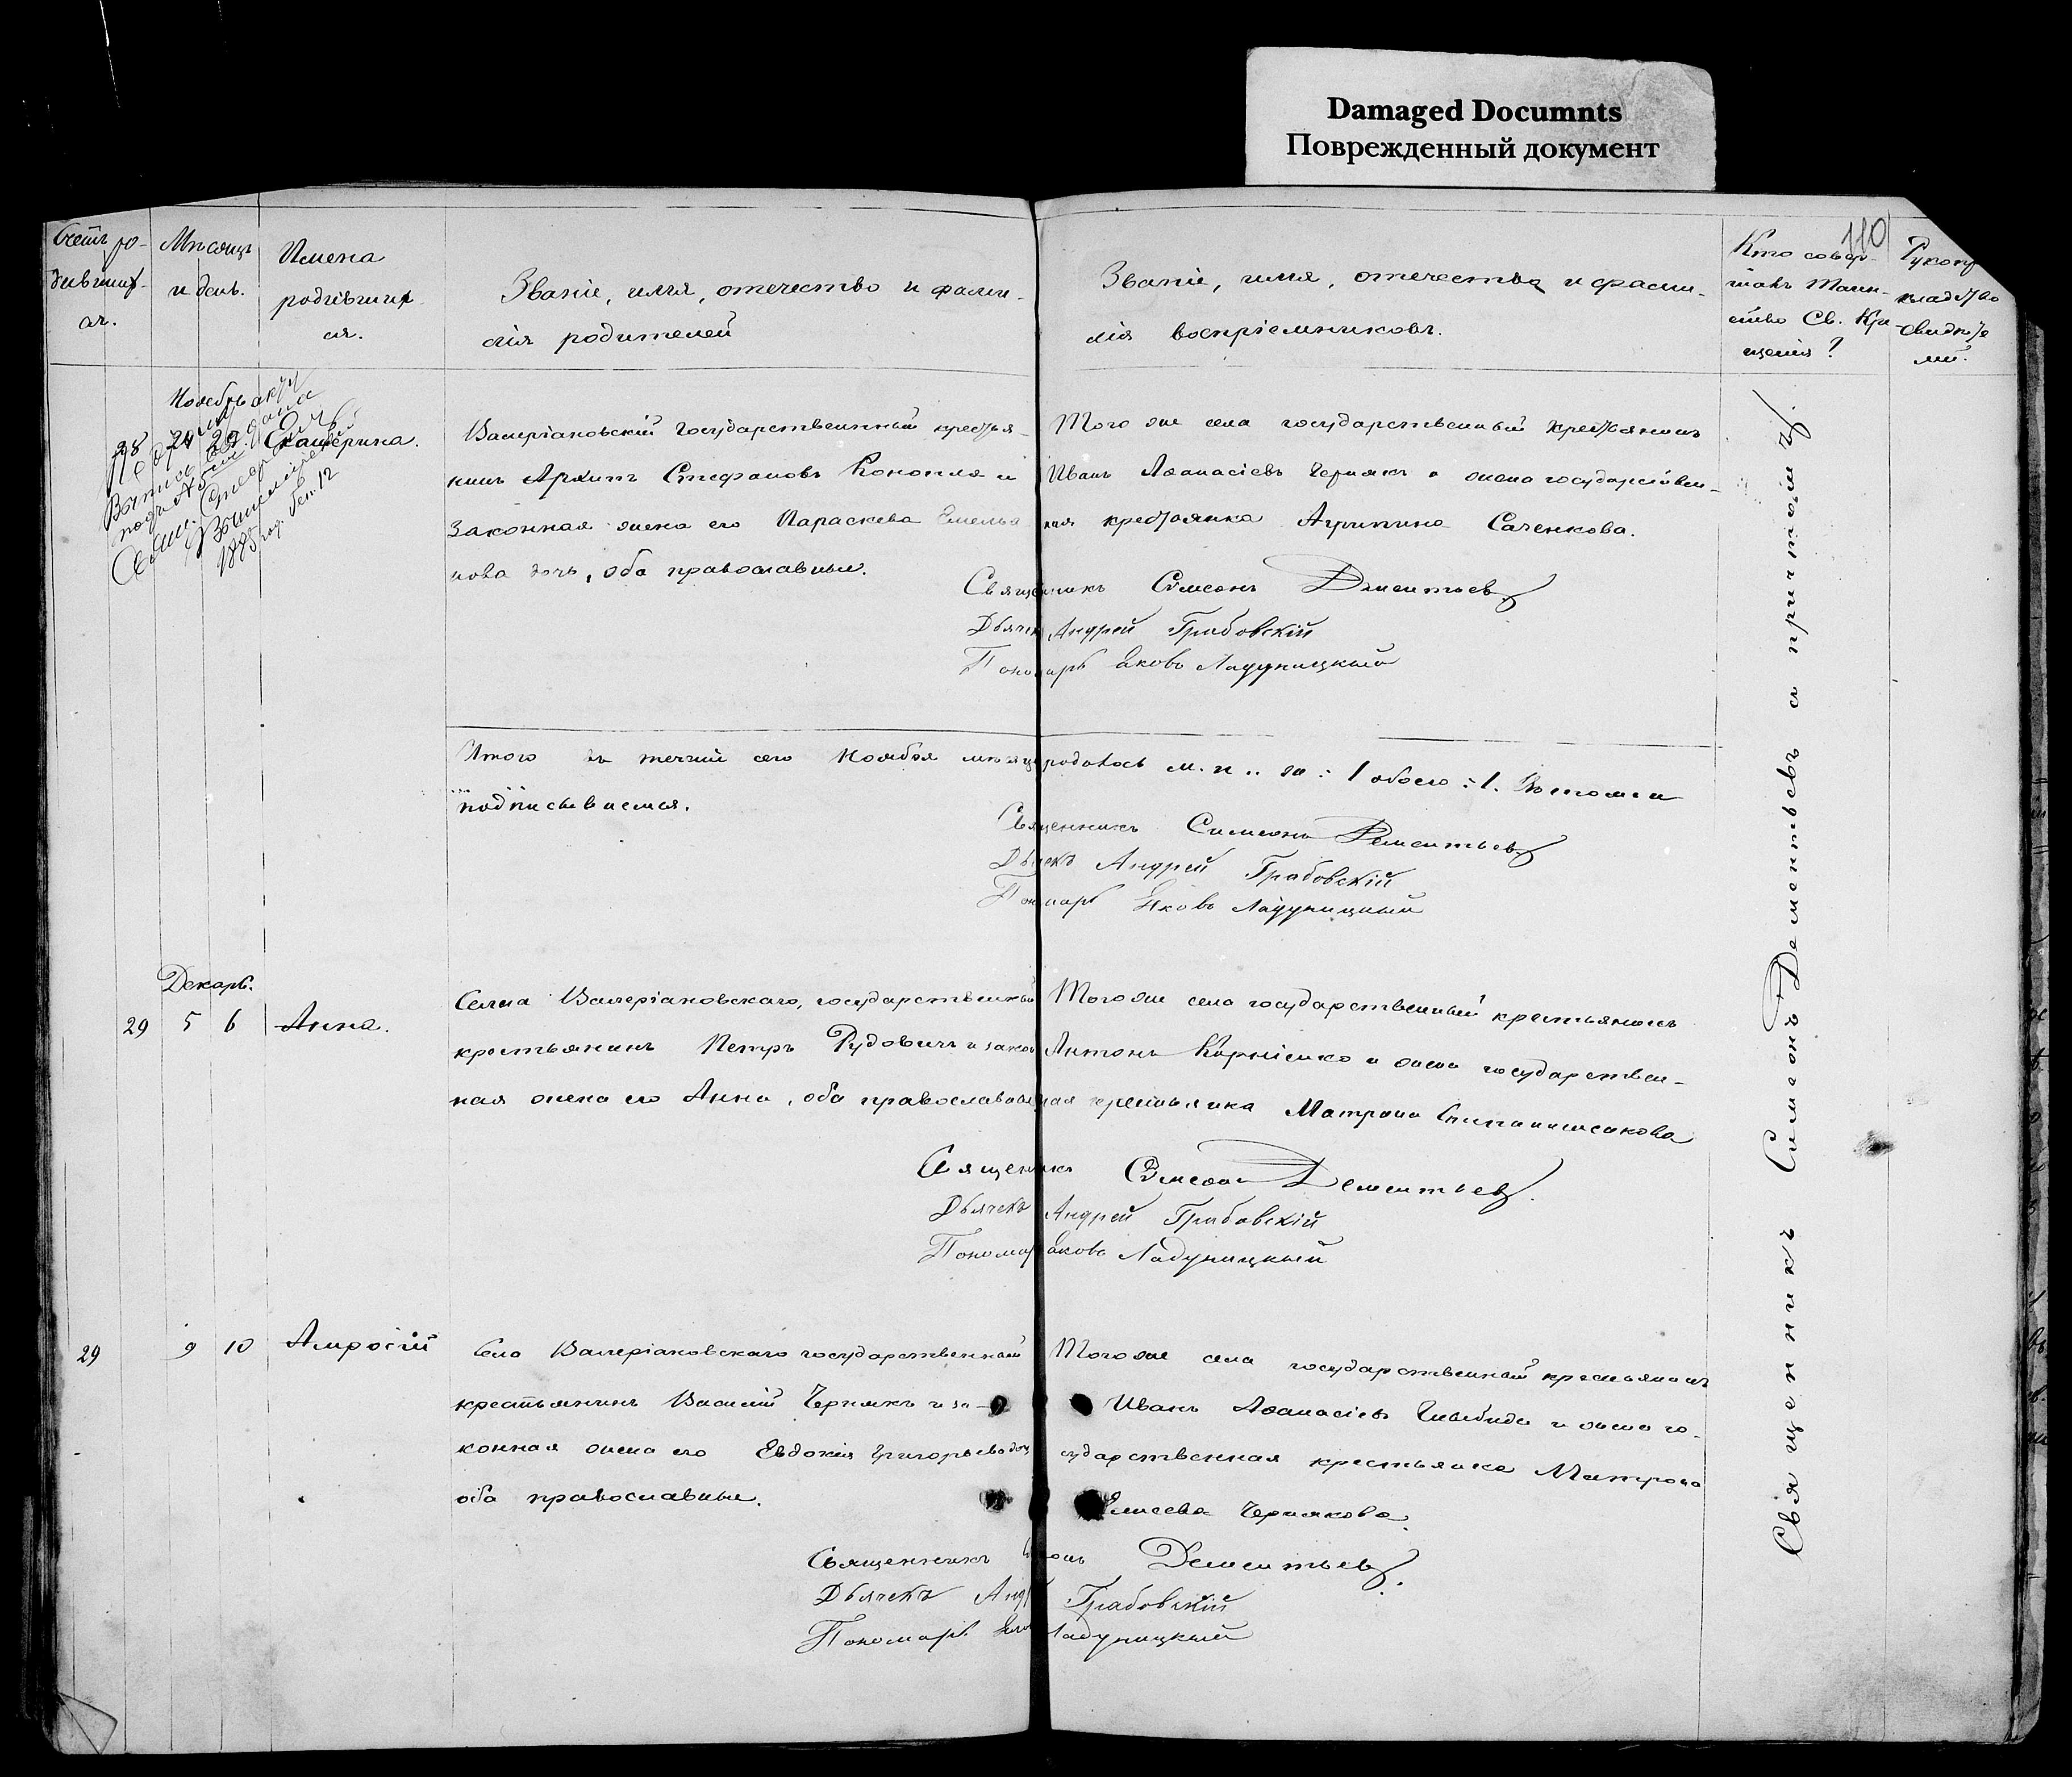 Damaged Documnts
Поврежденный документ
110
Счетъ ро-
дившихъ-
ся.
Мѣсяцъ
и день.
Имена
родивших
ся.
Званіе, имя, отечество и фами-
лія родителей
Званіе, имя, отечество и фами-
лія воспріемниковъ.
Кто совер-
шалъ Таин-
ство Св. Кре
щенія?
Рукопр
кладство
свидѣте
ли.
Ноябрь
28 24 29 Екатерина.
1885 год. Сен. 12
Валеріановскій государственный крестья-
нинъ Архипъ Стефановъ Конопля и
законная жена его Параскева Емелья
нова дочь, оба православные.
Того же села государственный крестьянинъ
Иванъ Аѳанасіевъ Чернякъ и жена государствен-
ная крестьянка Агрипина Саченкова.
Священникъ Сѵмеонъ Дементьевъ
Дьячекъ Андрей Грабовскій
Пономарь Яковъ Ладуницкый
Итого въ течніи сего Ноября мѣсяца родилось м. п .. ж : 1 обоего : 1. В томъ и
подписываемся.
Священникъ Симеонъ Дементьевъ
Дьячекъ Андрей Грабовскій
Пономарь Яковъ Ладуницкый
Декарь.
29 5 6 Анна.
Селиа Валеріановскаго, государственный
крестьянинъ Петръ Рудовичъ и закон
ная жена его Анна, оба православные
Того же села государственный крестьянинъ
Антонъ Корніенко и жена государствен-
ная крестьянка Матрона
Священникъ Сѵмеонъ Дементьевъ.
Дьячекъ Андрей Грабовскій
Пономарь Яковъ Ладуницкый
29 9 10 Амросій
Села Валеріановскаго государственный
крестьянинъ Василій Чернякъ и за-
конная жена его Евдокія Григорьева доч
оба православные.
Того же села государственный крестьянинъ
Иванъ Аѳанасіевъ и жена го-
сударственная крестьянка Матрона
Елисеева Чернякова.
Священникъ Дементьевъ.
Дьячекъ Анд Грабовскій
Пономарь Яков Ладуницкый
Священникъ Симеонъ Дементьевъ с причтомъ.